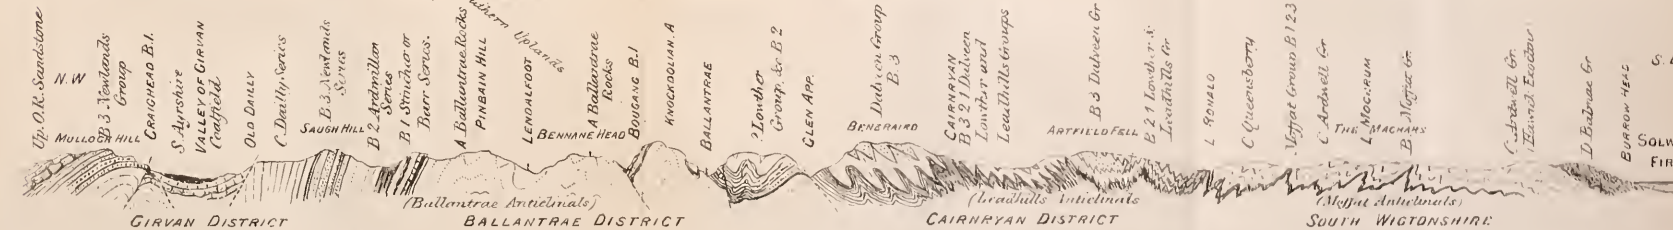 Southern Uplands
Up. O.R. Sandstone
N.W
MULLOCH HILL
B3 Newlands
Group
CRAIGHEAD B.1.
S. Ayrshire
VALLEY OF GIRVAN
Coalfield
OLD DAILLY
C. Dailly Series
SAUGH HILL
B3 Newlands
Series
B2 Ardmillan
Series
B1 Stinchar or
Barr Series.
A Ballantrae Rocks
PINBAIN HILL
LENDALFOOT
BENNANE HEAD
A Ballantrae
Rocks
BOUGANG B.1
KNOCKDOLIAN. A
BALLANTRAE
? Lowther
Group. &c B2
GLEN APP.
BENERAIRD
Dalveen Group
B3
CAIRNRYAN
B 3 2 1 Dalveen
Lowther and
Leadhills Groups
ARTFIELD FELL
B3 Dalveen Gr
B 2 1 Lowther &
Leadhills Gr
L RONALD
C Queensberry
Moffat Group B 1 2 3
C Ardwell Gr
THE MACHARS
L MOCHRUM
B Moffat Gr.
C Ardwell Gr.
D Balmae Gr
BURROW HEAD
SOLW
FIR
(Ballantrae Anticlinals)
(Leadhills Anticlinals
(Moffat Anticlinals)
GIRVAN DISTRICT
BALLANTRAE DISTRICT
CAIRNRYAN DISTRICT
SOUTH WIGTONSHIRE